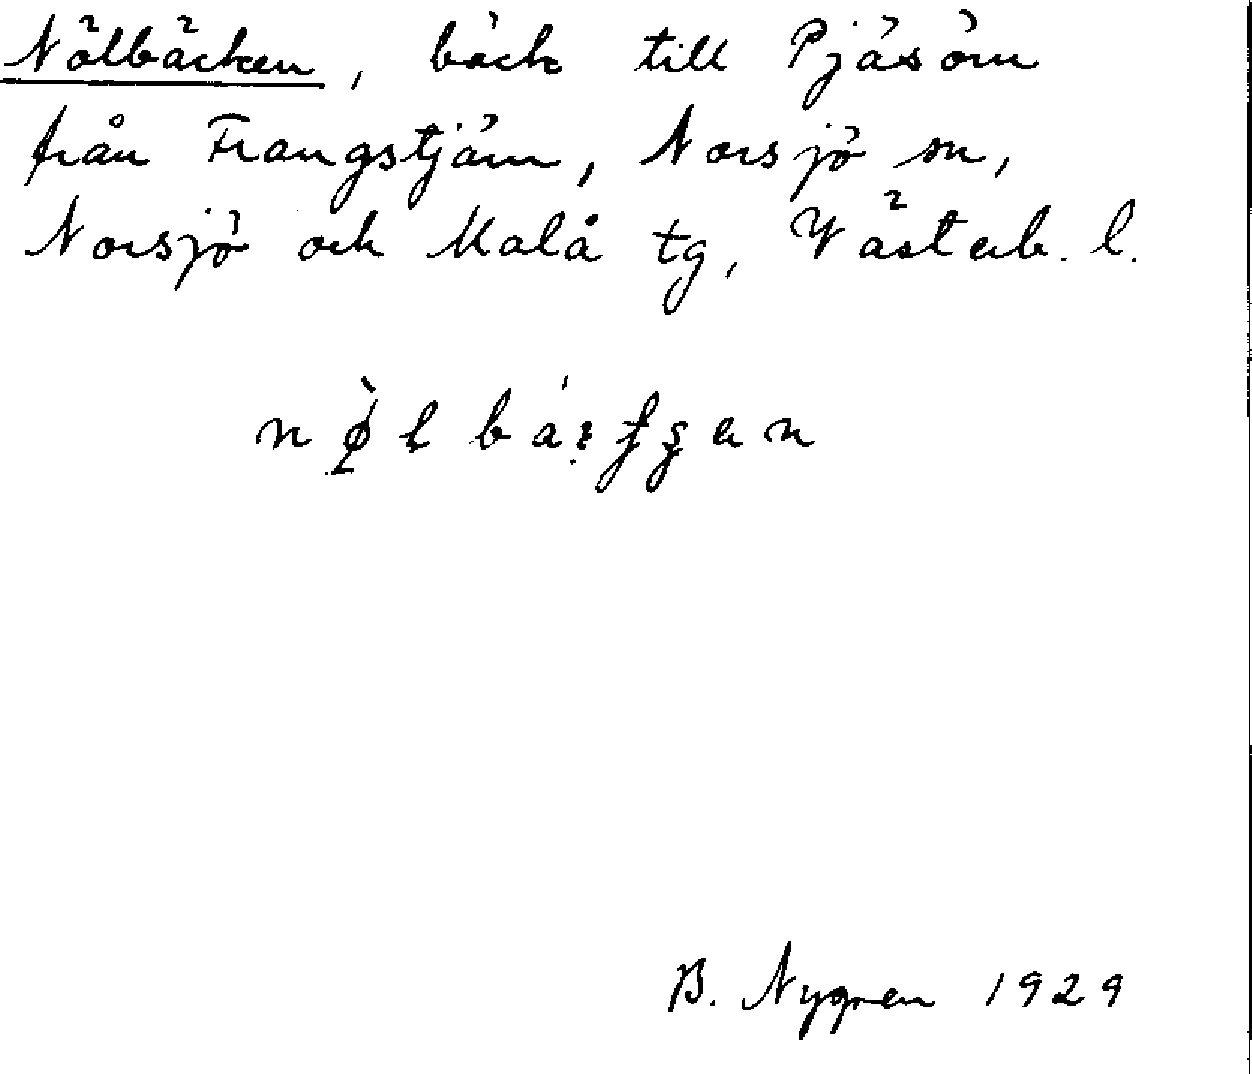 Nölbäcken, bäck till Pjäsörn
från Frangstjärn, Norsjö sn,
Norsjö och Malå tg, Västerb. l.
B. Nygren 1929